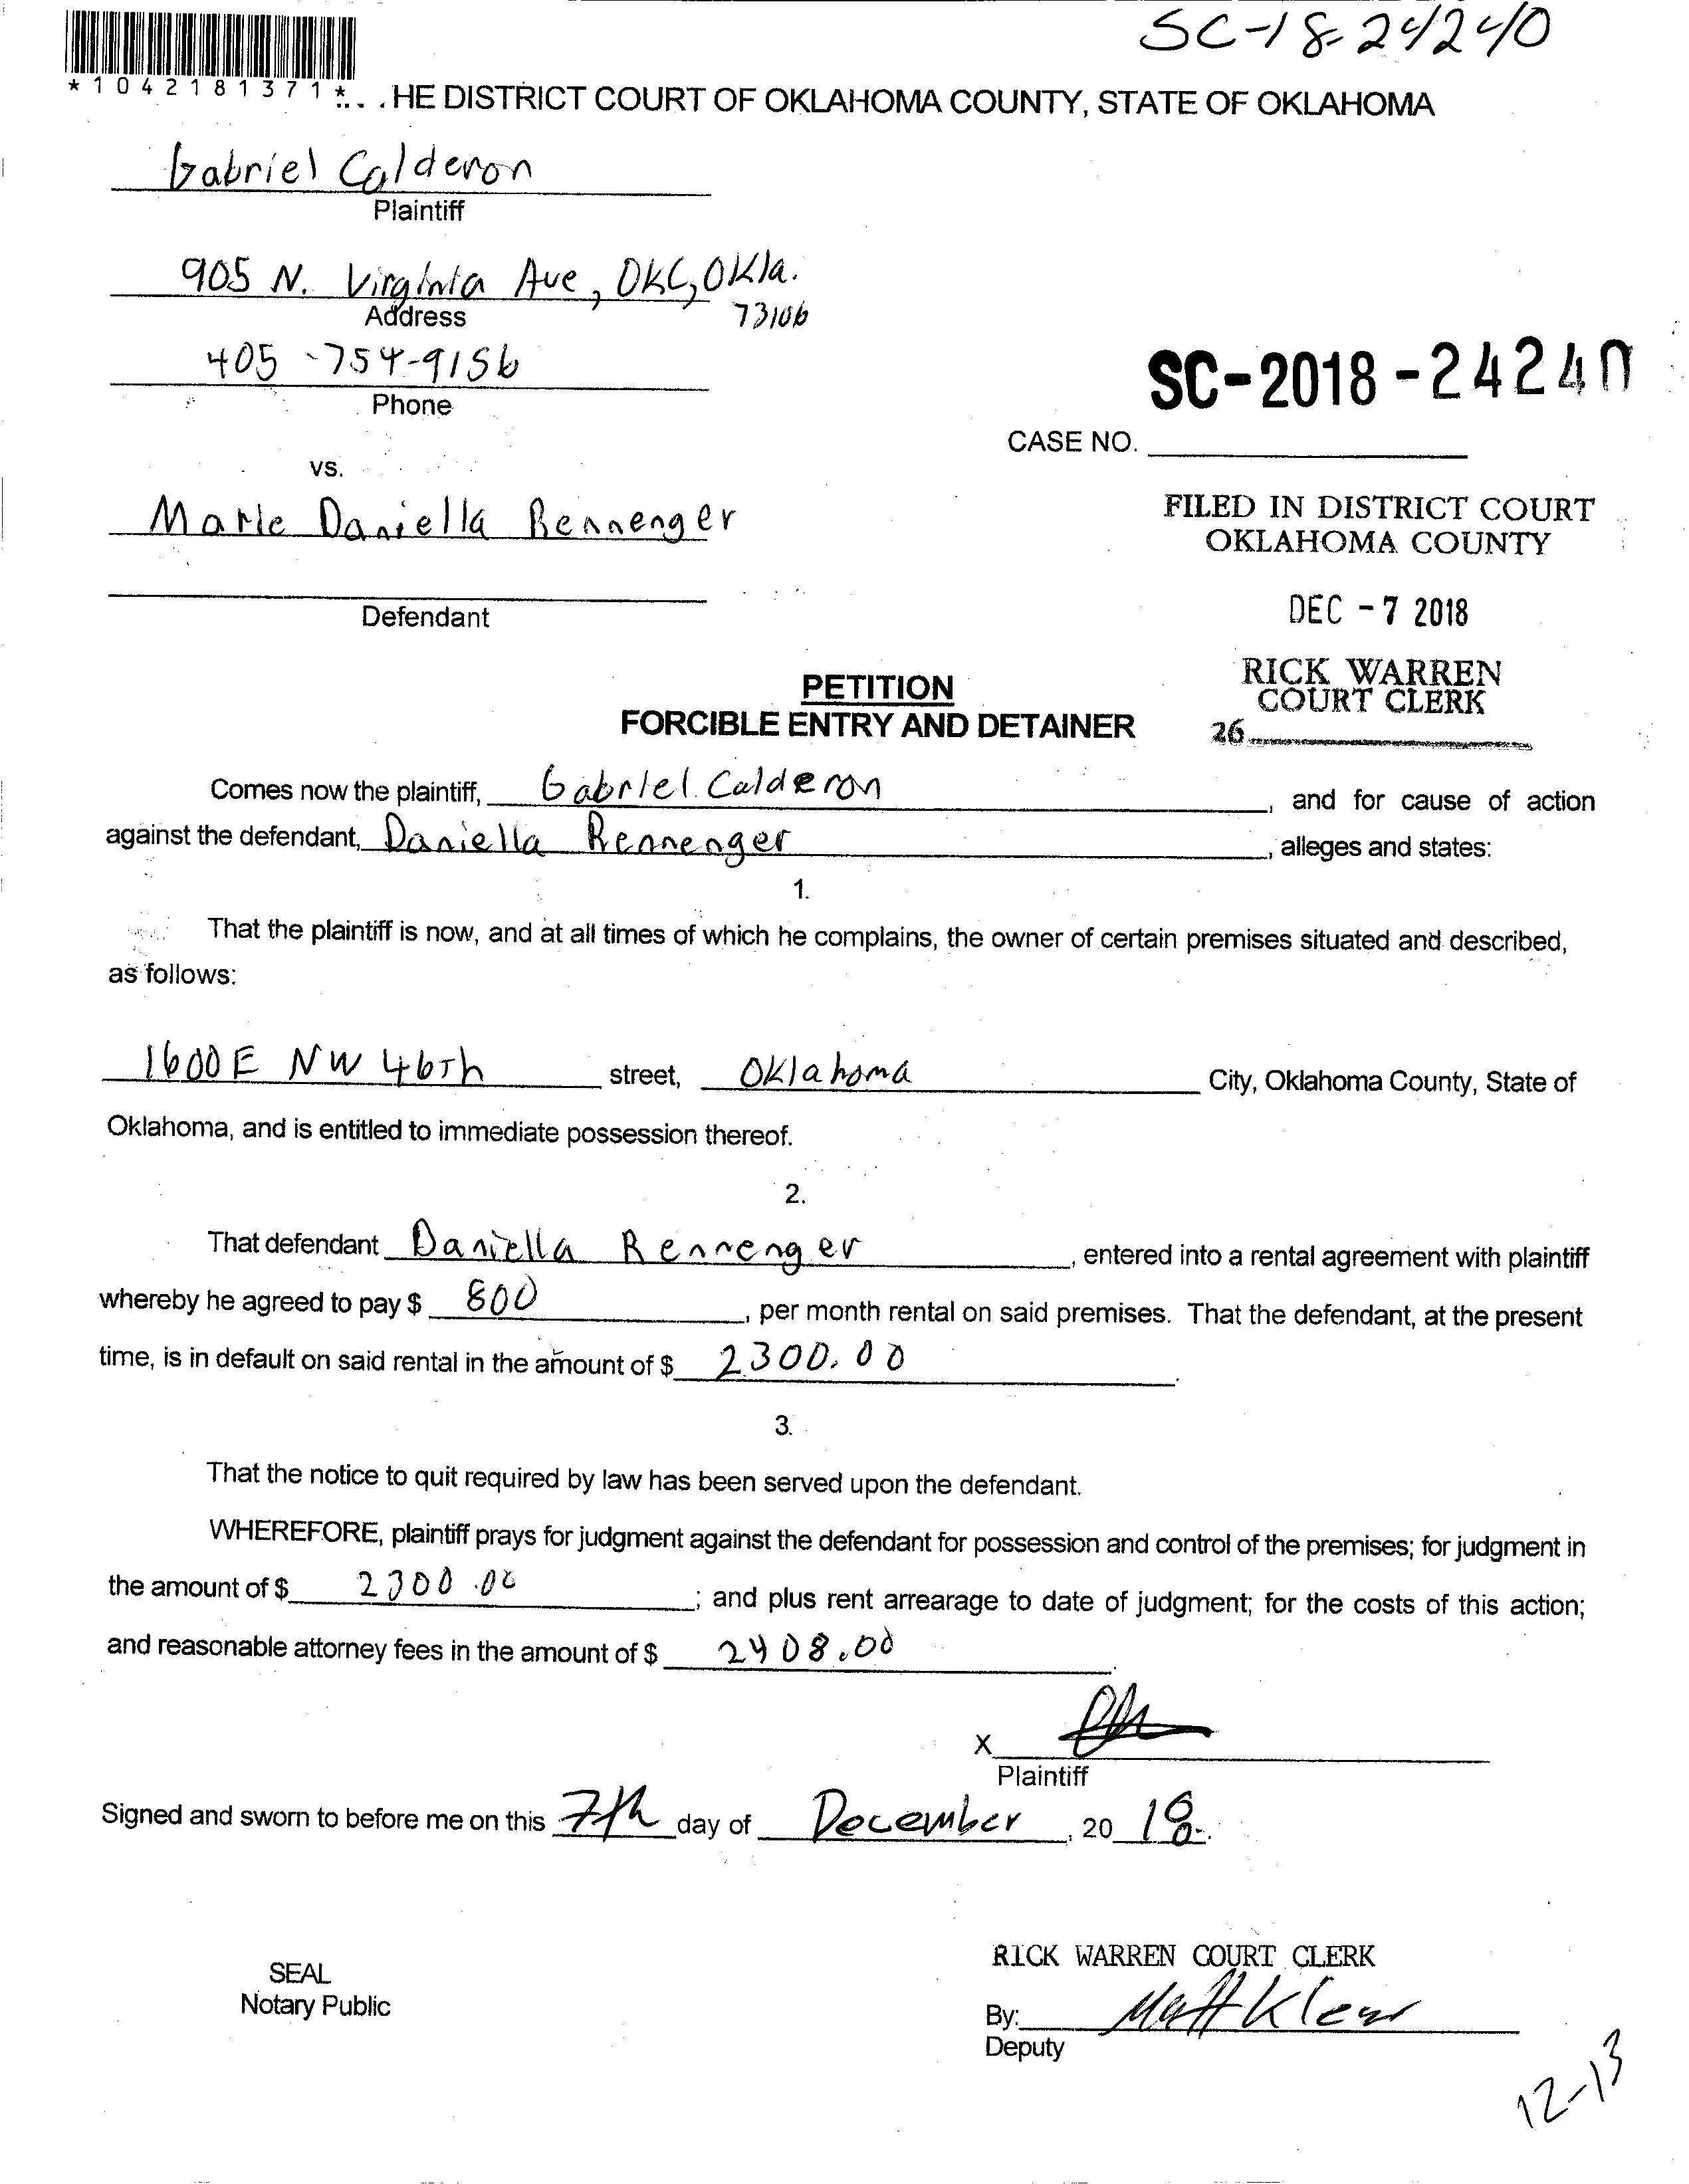 SC-18-24240
*1042181371*
. . .HE DISTRICT COURT OF OKLAHOMA COUNTY, STATE OF OKLAHOMA
Gabriel Calderon
Plaintiff
905 N. Virginia Ave, OKC, Okla.
Address 73106
405-754-9156
Phone
SC-2018-24240
CASE NO.
vs.
Marie Daniella Rennenger
Defendant
FILED IN DISTRICT COURT
OKLAHOMA COUNTY
DEC - 7 2018
RICK WARREN
COURT CLERK
26
PETITION
FORCIBLE ENTRY AND DETAINER
Comes now the plaintiff, Gabriel Calderon, and for cause of action
against the defendant, Daniella Rennenger, alleges and states:
1.
That the plaintiff is now, and at all times of which he complains, the owner of certain premises situated and described,
as follows:
1600 E NW 46Th street, Oklahoma City, Oklahoma County, State of
Oklahoma, and is entitled to immediate possession thereof.
2.
That defendant Daniella Rennenger, entered into a rental agreement with plaintiff
whereby he agreed to pay $ 800, per month rental on said premises. That the defendant, at the present
time, is in default on said rental in the amount of $ 2300.00.
3.
That the notice to quit required by law has been served upon the defendant.
WHEREFORE, plaintiff prays for judgment against the defendant for possession and control of the premises; for judgment in
the amount of $ 2300.00; and plus rent arrearage to date of judgment; for the costs of this action;
and reasonable attorney fees in the amount of $ 2408.00.
X
Plaintiff
Signed and sworn to before me on this 7th day of December, 20 18.
SEAL
Notary Public
RICK WARREN COURT CLERK
By: Matt
Deputy
12-13